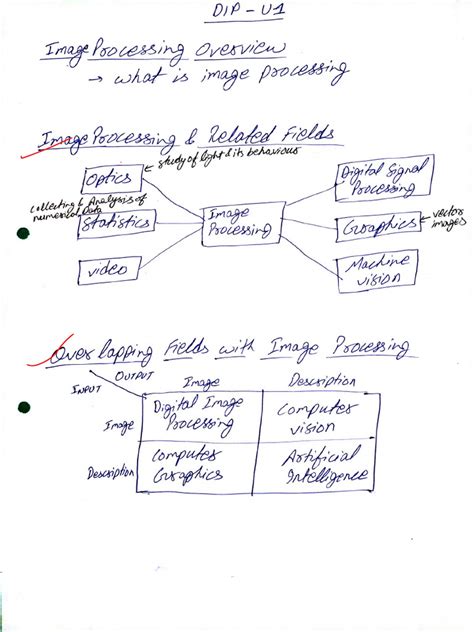 DIP - U1
Image Processing Overview
→ what is image processing
Image Processing & Related Fields
Optics
study of light & its behaviour
collecting & Analysis of
numerical Data
Statistics
video
Image
Processing
Digital Signal
Processing
Graphics
vectors
images
Machine
vision
Overlapping Fields with Image Processing
OUTPUT
INPUT
Image
Description
Image
Digital Image
Processing
Computer
vision
Description
Computer
Graphics
Artificial
Intelligence